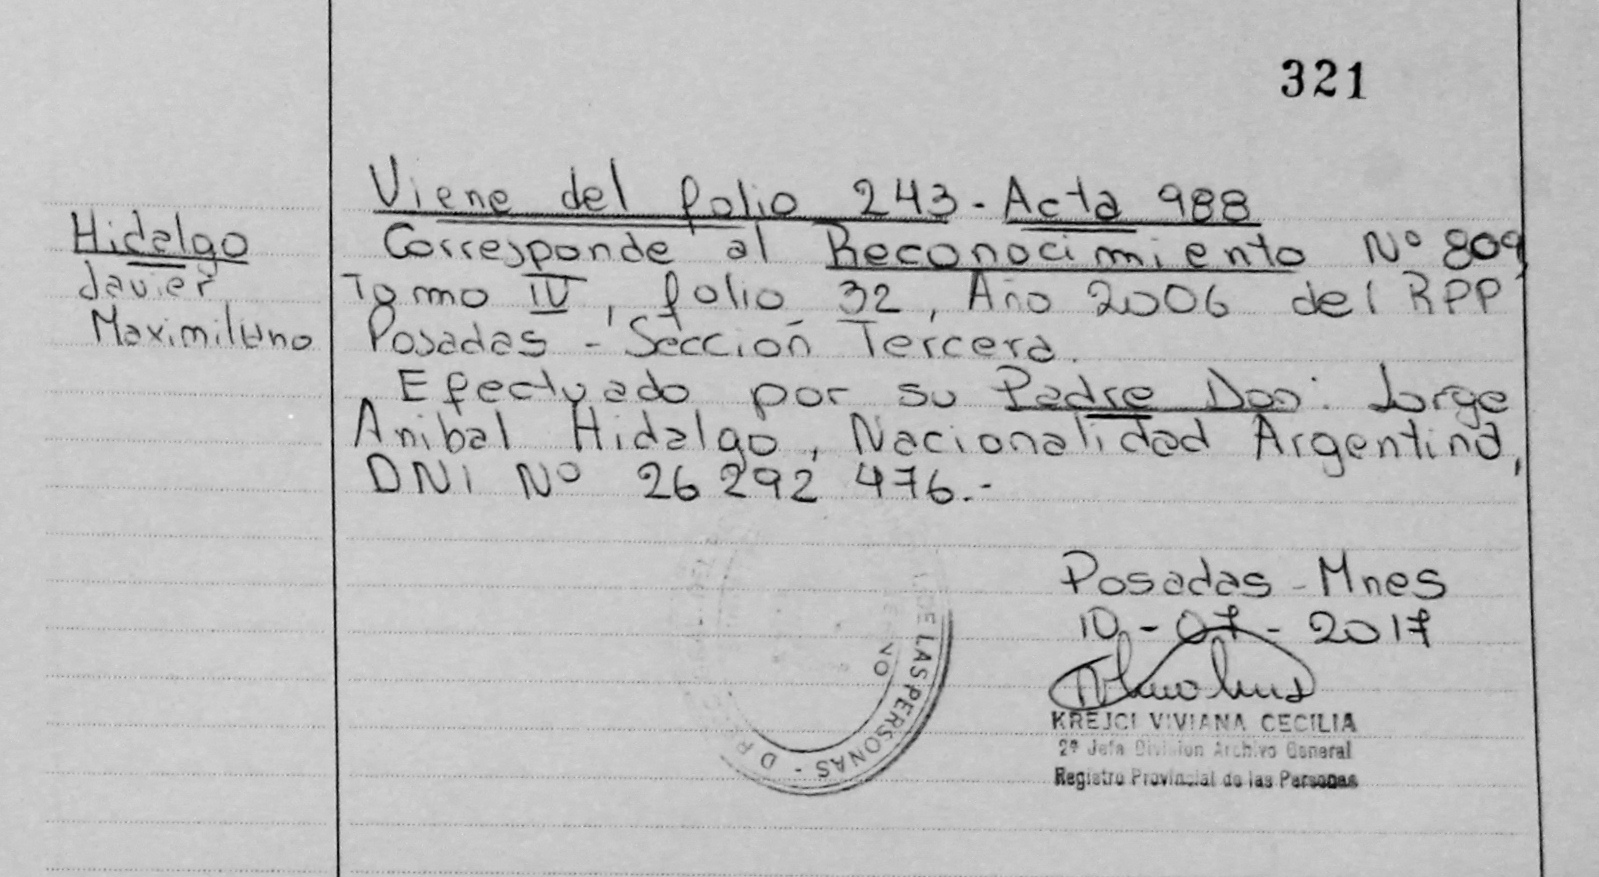 321
Viene del folio 243 - Acta 988
Hidalgo
Javier
Maximiliano
Corresponde al Reconocimiento Nº 809
Tomo IV, folio 32, Año 2006 del RPP
Posadas - Sección Tercera.
Efectuado por su Padre Don: Jorge
Anibal Hidalgo, Nacionalidad Argentina,
DNI Nº 26 292 476.-
Posadas - Mnes
10-07-2017
KREJCI VIVIANA CECILIA
2ª Jefa Division Archivo General
Registro Provincial de las Personas
DE LAS PERSONAS - D